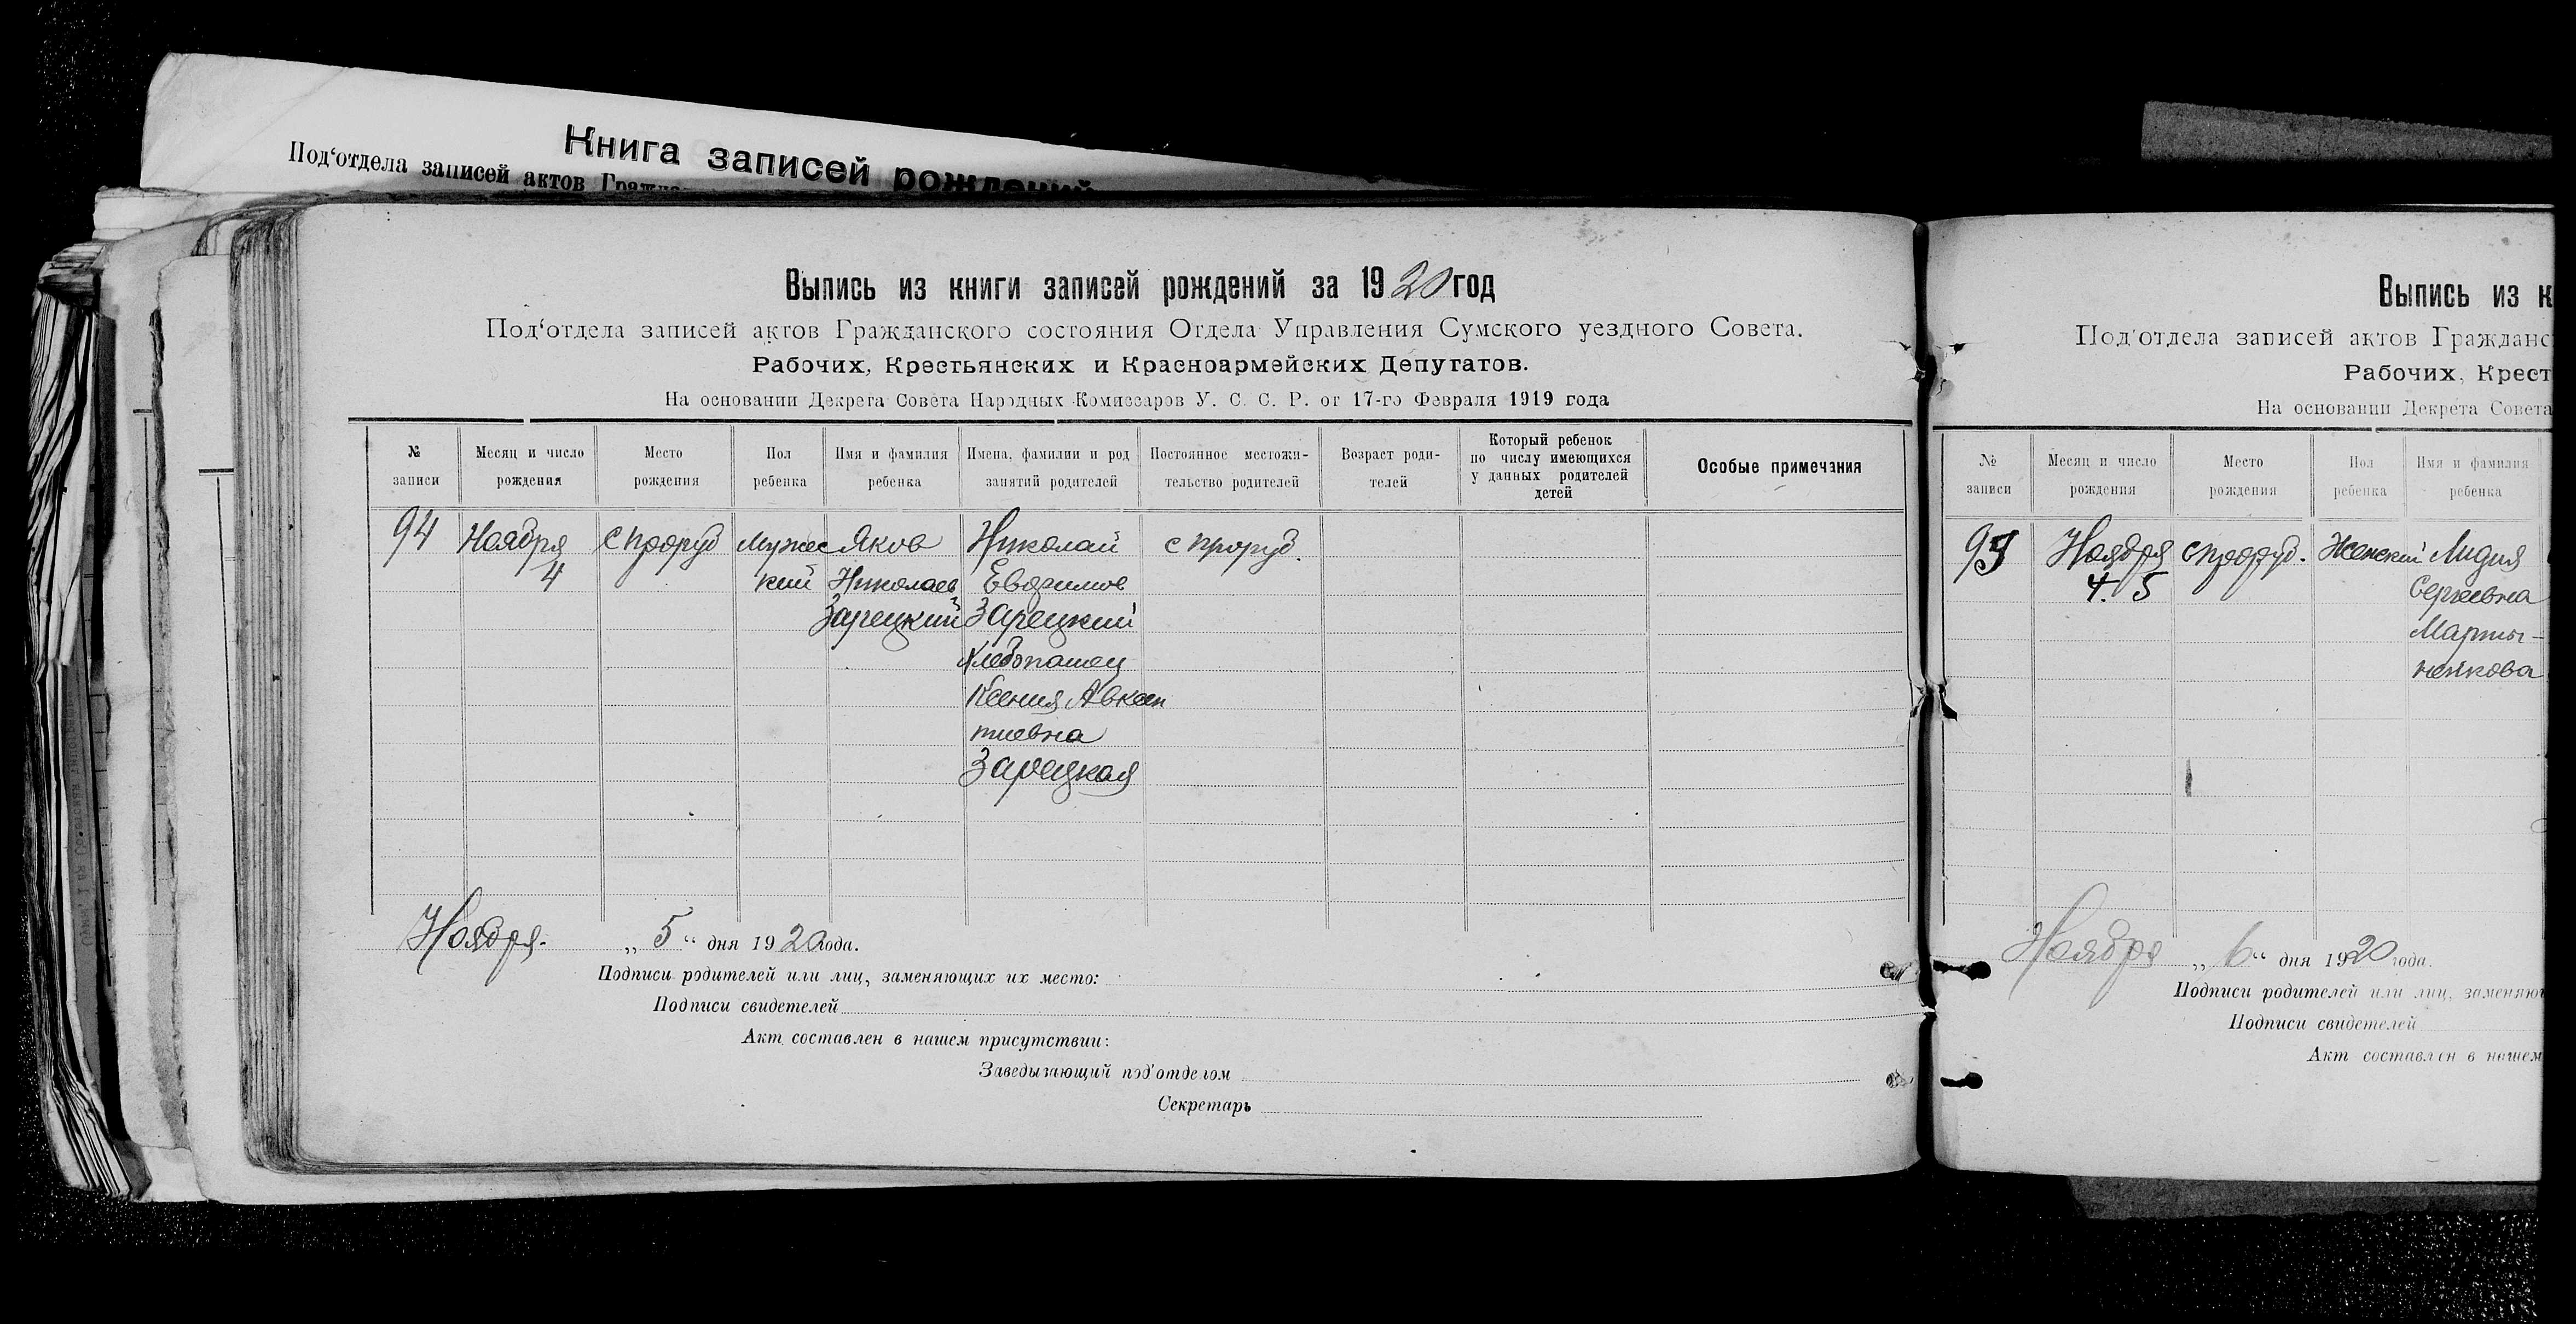 Книга записей рождений
Под‘отдела записей актов
Выпись из книги записей рождений за 1920 год
Под‘отдела записей актов Гражданского состояния Отдела Управления Сумского уездного Совета.
Рабочих, Крестьянских и Красноармейских Депутатов.
На основании Декрета Совета Народных Комиссаров У. С. С. Р. от 17-го Февраля 1919 года
№ записи
Месяц и число рождения
Место рождения
Пол ребенка
Имя и фамилия ребенка
Имена, фамилии и род занятий родителей
Постоянное местожи-тельство родителей
Возраст роди-телей
Который ребенок по числу имеющихся у данных родителей детей
Особые примечания
94 Ноября с проруб Мужес Яков Николай с проруб.
4 кий Николаев Евфимов
Зарецкий Зарецкий
Хлебопашец
Ксения Авксен
тиевна
Зарецкая
Ноября. „ 5 “ дня 1920 года.
Подписи родителей или лиц, заменяющих их место:
Подписи свидетелей
Акт составлен в нашем присутствии:
Заведывающий под‘отделом
Секретарь
Выпись из к
Под‘отдела записей актов Гражданс
Рабочих, Крест
На основании Декрета Совета
№ записи
Месяц и число рождения
Место рождения
Пол ребенка
Имя и фамилия ребенка
95 Ноября с проруб. Женский Лидия
4. 5 Сергеевна
Марты-
ненкова
Ноября „ 6 “ дня 1920 года.
Подписи родителей или лиц, заменяю
Подписи свидетелей
Акт составлен в нашем